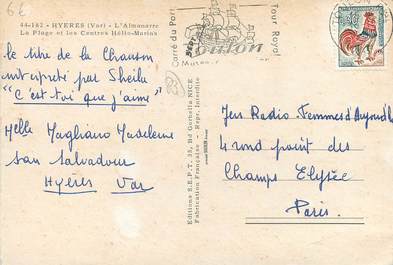 6€
44-182 - HYERES (Var) - L'Almanarre
La Plage et les Centres Hélio-Marins
le titre de la Chanson
interprété par Sheila
"C'est toi que j'aime"
Melle Magliano Madeleine
san salvadour
Hyères Var
Editions S.E.P.T. 35, Bd Gorbella NICE
Fabrication Française - Repr. Interdite
Carré du Port
Toulon
Tour Royale
Jeu Radio-Femmes d'Aujourd'hui
4 rond point des
Champs Elysée
Paris.